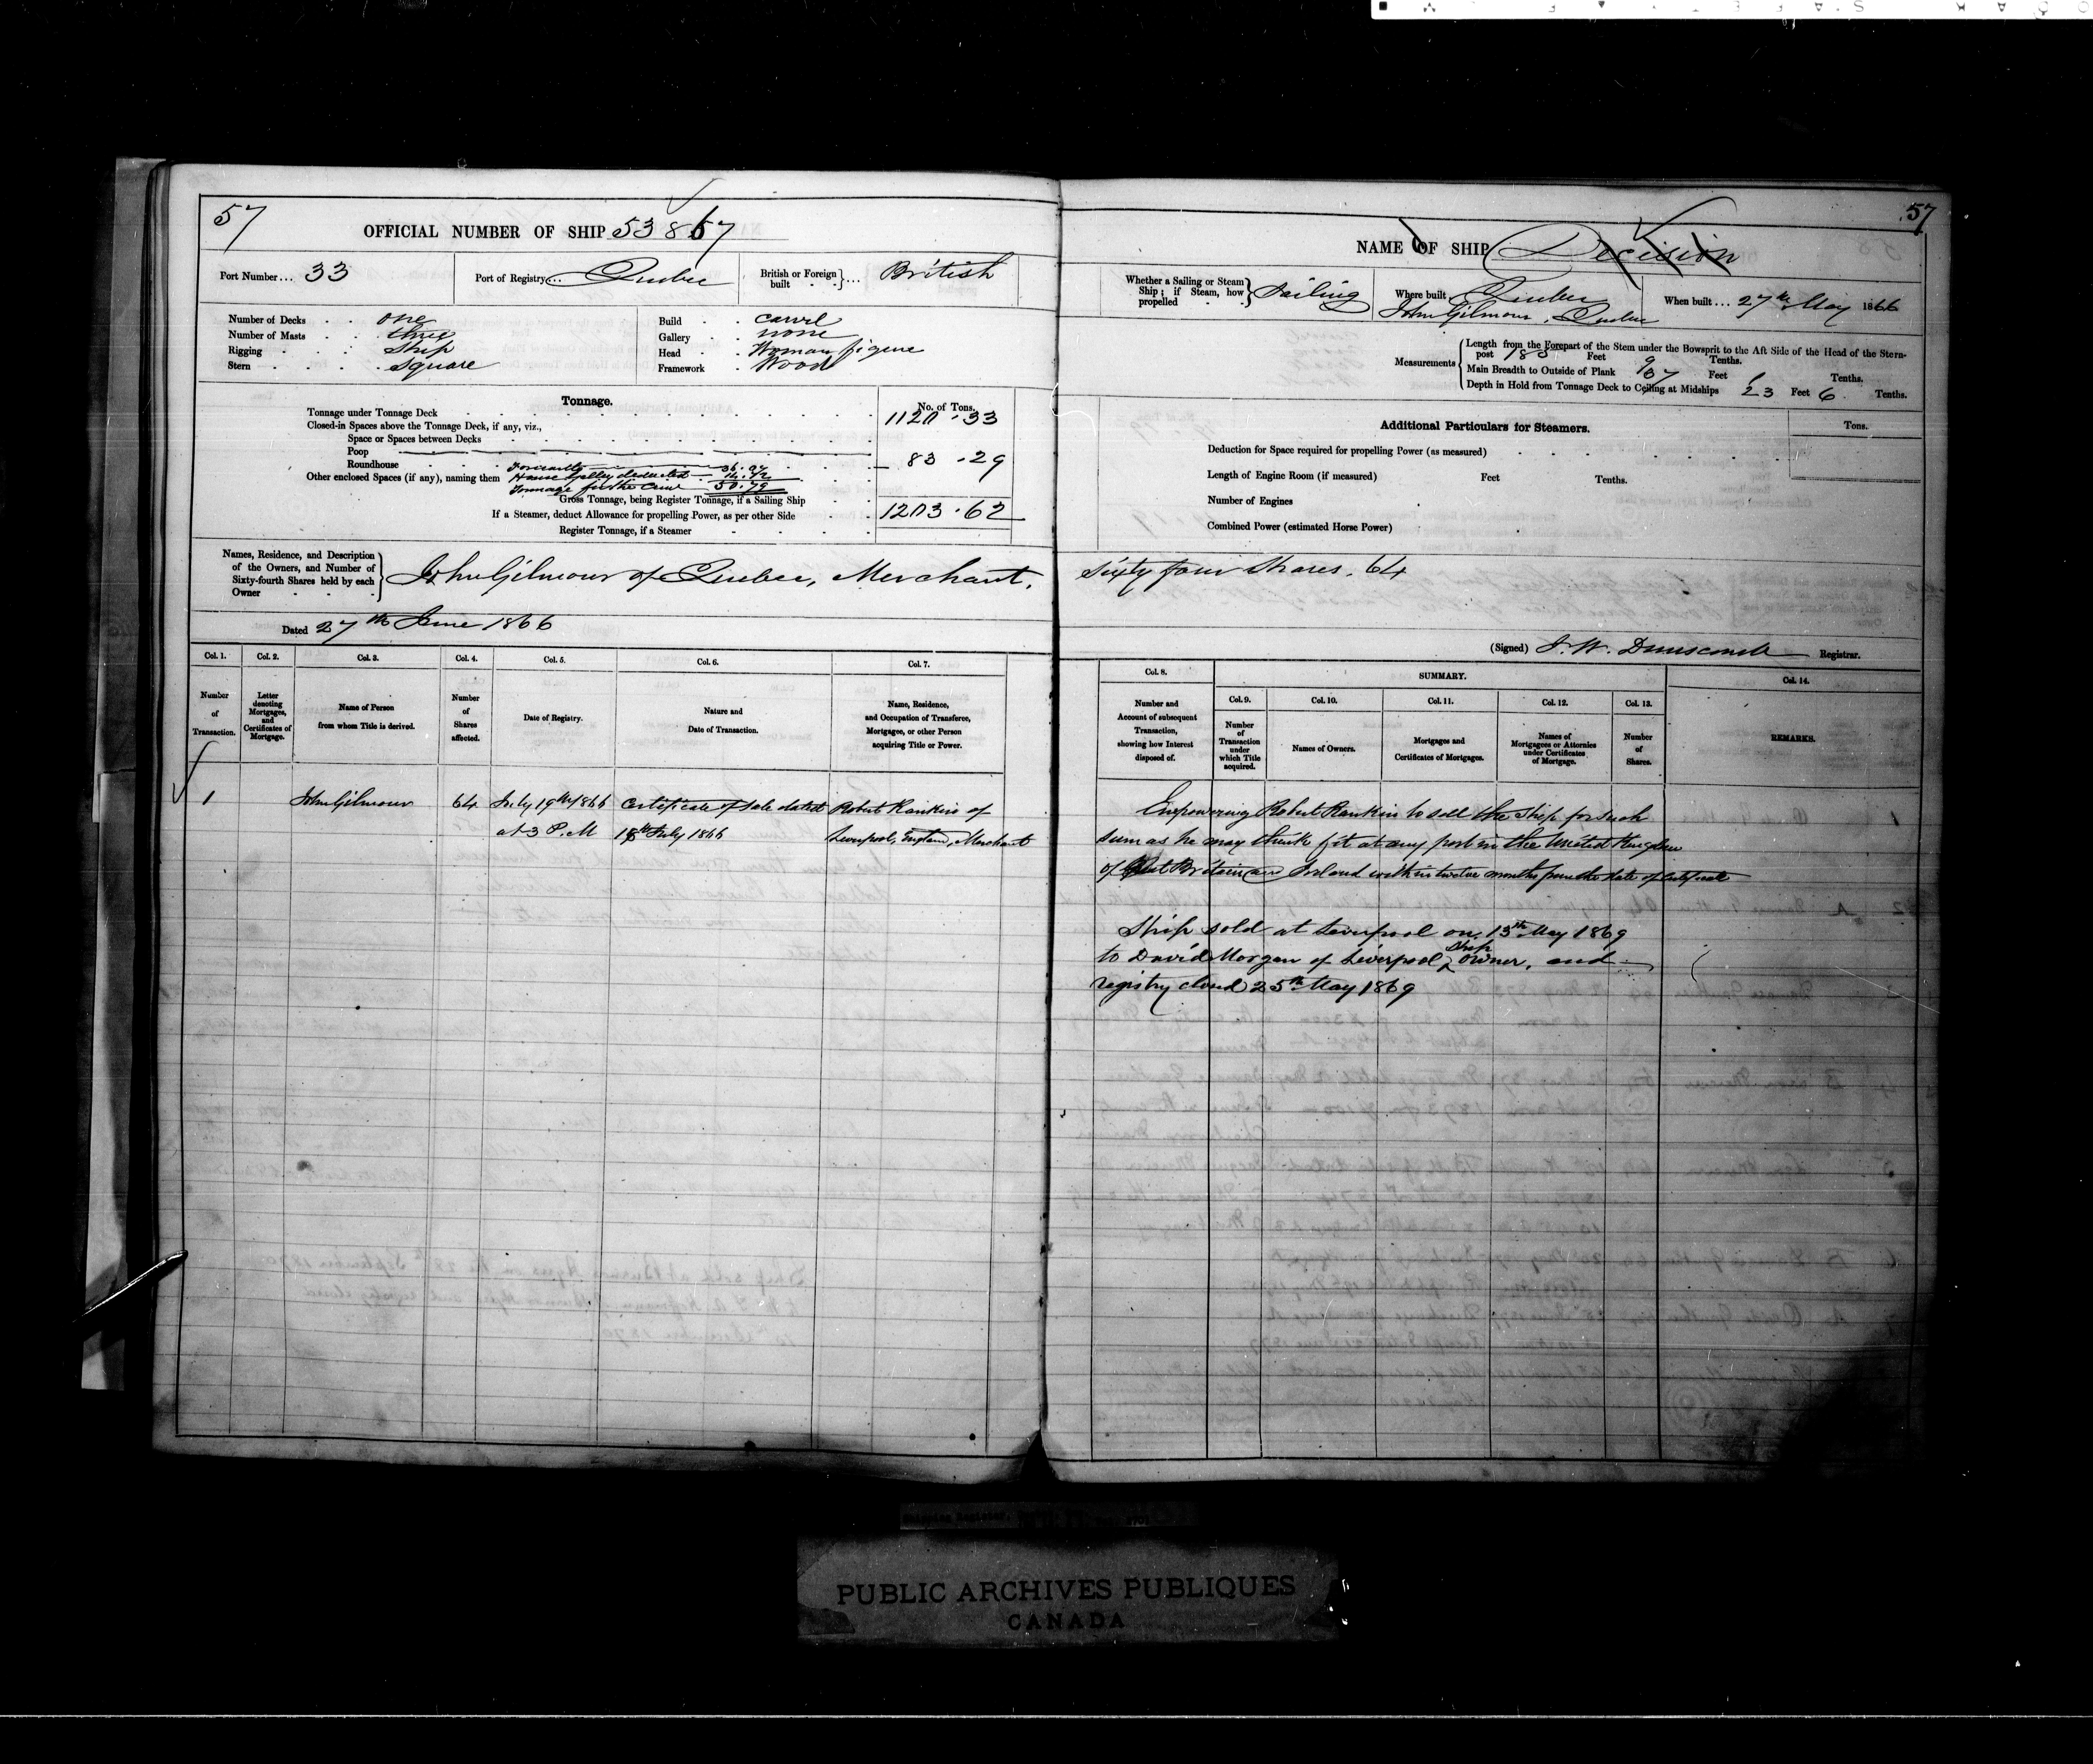 57
OFFICIAL NUMBER OF SHIP 53867
Port Number... 33
Port of Registry... Quebec
British or Foreign built ... British
Number of Decks . . one
Number of Masts . . three
Rigging . . . Ship
Stern . . . . square
Build . . carvel
Gallery . . none
Head . . Woman figure
Framework . Wood
Tonnage.
No. of Tons.
Tonnage under Tonnage Deck 1120.33
Closed-in Spaces above the Tonnage Deck, if any, viz.,
Space or Spaces between Decks
Poop
Roundhouse 83.29
Other enclosed Spaces (if any), naming them
House Galley deducted
Tonnage for the Crew 50.79
Gross Tonnage, being Register Tonnage, if a Sailing Ship 1203.62
If a Steamer, deduct Allowance for propelling Power, as per other Side
Register Tonnage, if a Steamer
Names, Residence, and Description of the Owners, and Number of Sixty-fourth Shares held by each Owner
John Gilmour of Quebec, Merchant,
Dated 27th June 1866
Col. 1. Col. 2. Col. 3. Col. 4. Col. 5. Col. 6. Col. 7.
Number of Transaction.
Letter denoting Mortgages, and Certificates of Mortgage.
Name of Person from whom Title is derived.
Number of Shares affected.
Date of Registry.
Nature and Date of Transaction.
Name, Residence, and Occupation of Transferee, Mortgagee, or other Person acquiring Title or Power.
1 John Gilmour 64 July 19th 1866 Certificate of Sale dated Robert Rankin of
at 3 P.M 18th July 1866 Liverpool, England, Merchant
57
NAME OF SHIP Decision
Whether a Sailing or Steam Ship; if Steam, how propelled Sailing
Where built Quebec
John Gilmour, Quebec
When built ... 27th May 1866
Measurements
Length from the Forepart of the Stem under the Bowsprit to the Aft Side of the Head of the Stern-
post 185 Feet 9 Tenths.
Main Breadth to Outside of Plank 37 Feet Tenths.
Depth in Hold from Tonnage Deck to Ceiling at Midships 23 Feet 6 Tenths.
Additional Particulars for Steamers.
Tons.
Deduction for Space required for propelling Power (as measured)
Length of Engine Room (if measured) Feet Tenths.
Number of Engines
Combined Power (estimated Horse Power)
Sixty four Shares. 64
(Signed) J. W. Dunscomb Registrar.
Col. 8. SUMMARY. Col. 14.
Col. 9. Col. 10. Col. 11. Col. 12. Col. 13.
Number and Account of subsequent Transaction, showing how Interest disposed of.
Number of Transaction under which Title acquired.
Names of Owners.
Mortgages and Certificates of Mortgages.
Names of Mortgagees or Attornies under Certificates of Mortgage.
Number of Shares.
REMARKS.
Empowering Robert Rankin to sell the Ship for such
sum as he may think fit at any port in the United Kingdom
of Great Britain and Ireland within twelve months from the date of Certificate
Ship sold at Liverpool on 13th May 1869
to David Morgan of Liverpool, Ship owner, and
registry closed 25th May 1869
PUBLIC ARCHIVES PUBLIQUES
CANADA